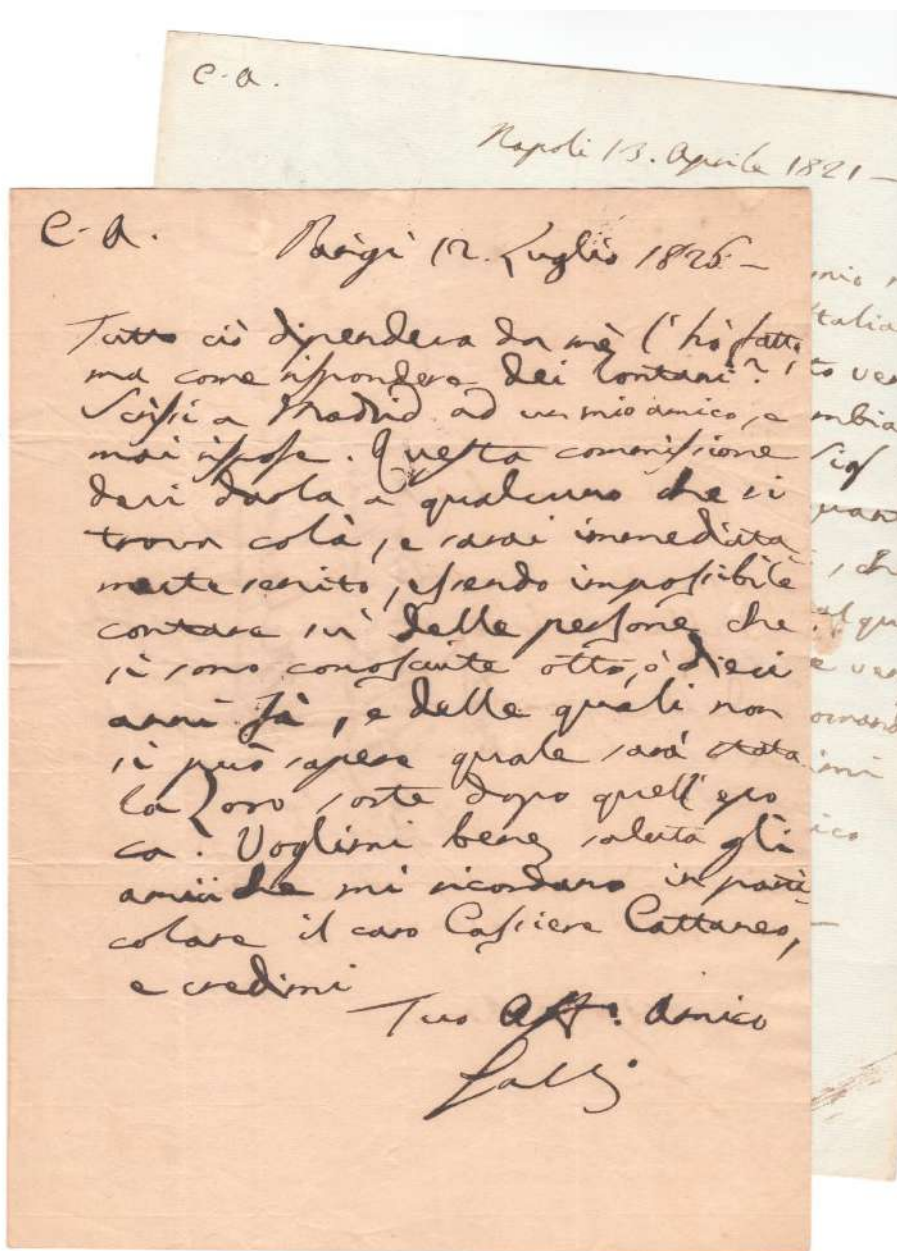 C. A.
Napoli 13. Aprile 1821 —
C. A. Parigi 12. Luglio 1826 —
Tutto ciò dipendeva da mè l'hò fatto
ma come rispondere dei lontani?
Scrissi a Madrid ad un mio amico, e
mai rispose. Questa commissione
devi darla a qualcuno che si
trova colà, e sarai immediata
mente servito, essendo impossibile
contare sù delle persone che
si sono conosciute otto, ò dieci
anni fà, e delle quali non
si può sapere quale sarà stata
la loro sorte dopo quell'epo
ca. Voglimi bene, saluta gli
amici che mi ricordano in parti-
colare il caro Cassiere Cattaneo,
e credimi
Tuo Aff. Amico
Galli